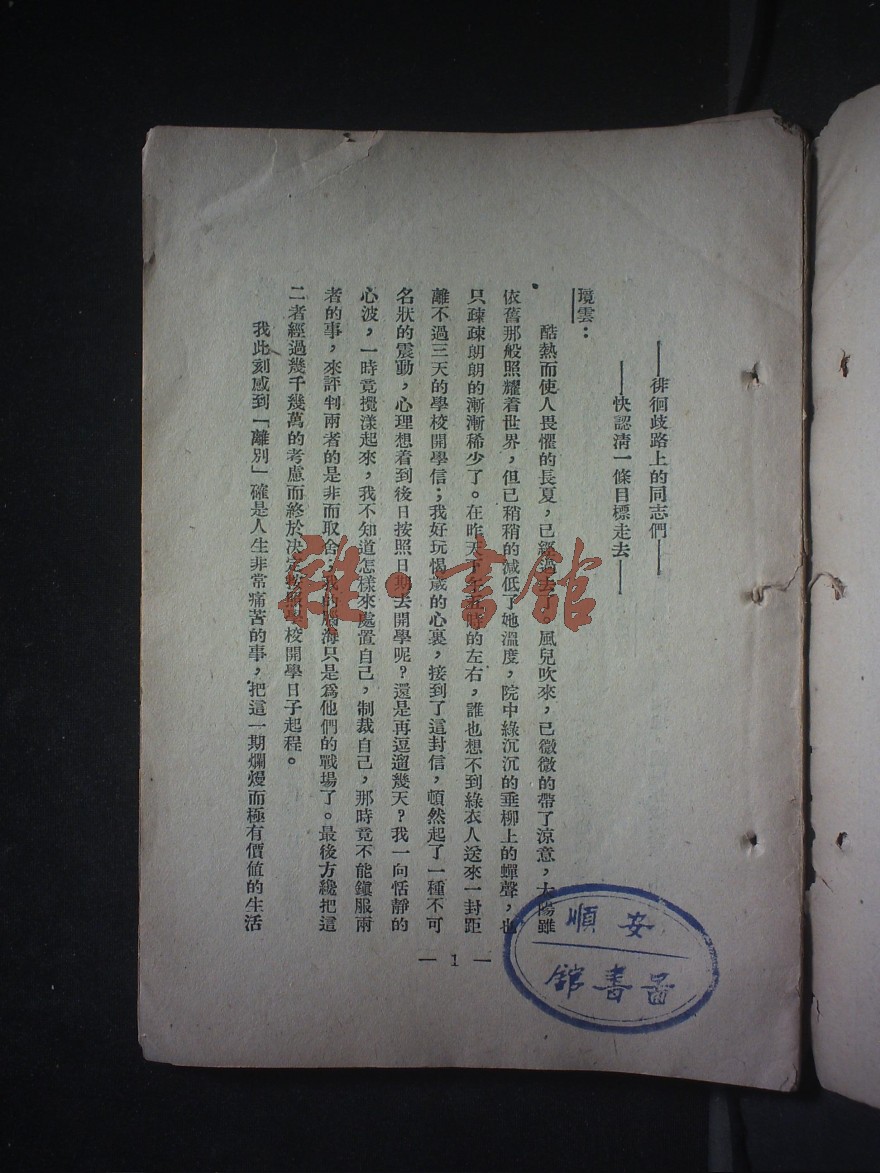 ——徘徊歧路上的同志們——
——快認清一條目標走去——
境雲：
酷熱而使人畏懼的長夏，已經過去，風兒吹來，已微微的帶了涼意，太陽雖
依舊那般照耀着世界，但已稍稍的減低了她溫度，院中綠沉沉的垂柳上的蟬聲，也
只疎疎朗朗的漸漸稀少了。在昨天下午五時的左右，誰也想不到綠衣人送來一封距
離不過三天的學校開學信；我好玩愒歲的心裏，接到了這封信，頓然起了一種不可
名狀的震動，心理想着到後日按照日期去開學呢？還是再逗遛幾天？我一向恬靜的
心波，一時竟攪漾起來，我不知道怎樣來處置自己，制裁自己，那時竟不能鎮服兩
者的事，來評判兩者的是非而取舍；我的腦海只是爲他們的戰場了。最後方纔把這
二者經過幾千幾萬的考慮而終於決定按照學校開學日子起程。
我此刻感到「離別」確是人生非常痛苦的事，把這一期爛熳而極有價值的生活
— 1 —
安順
圖書館